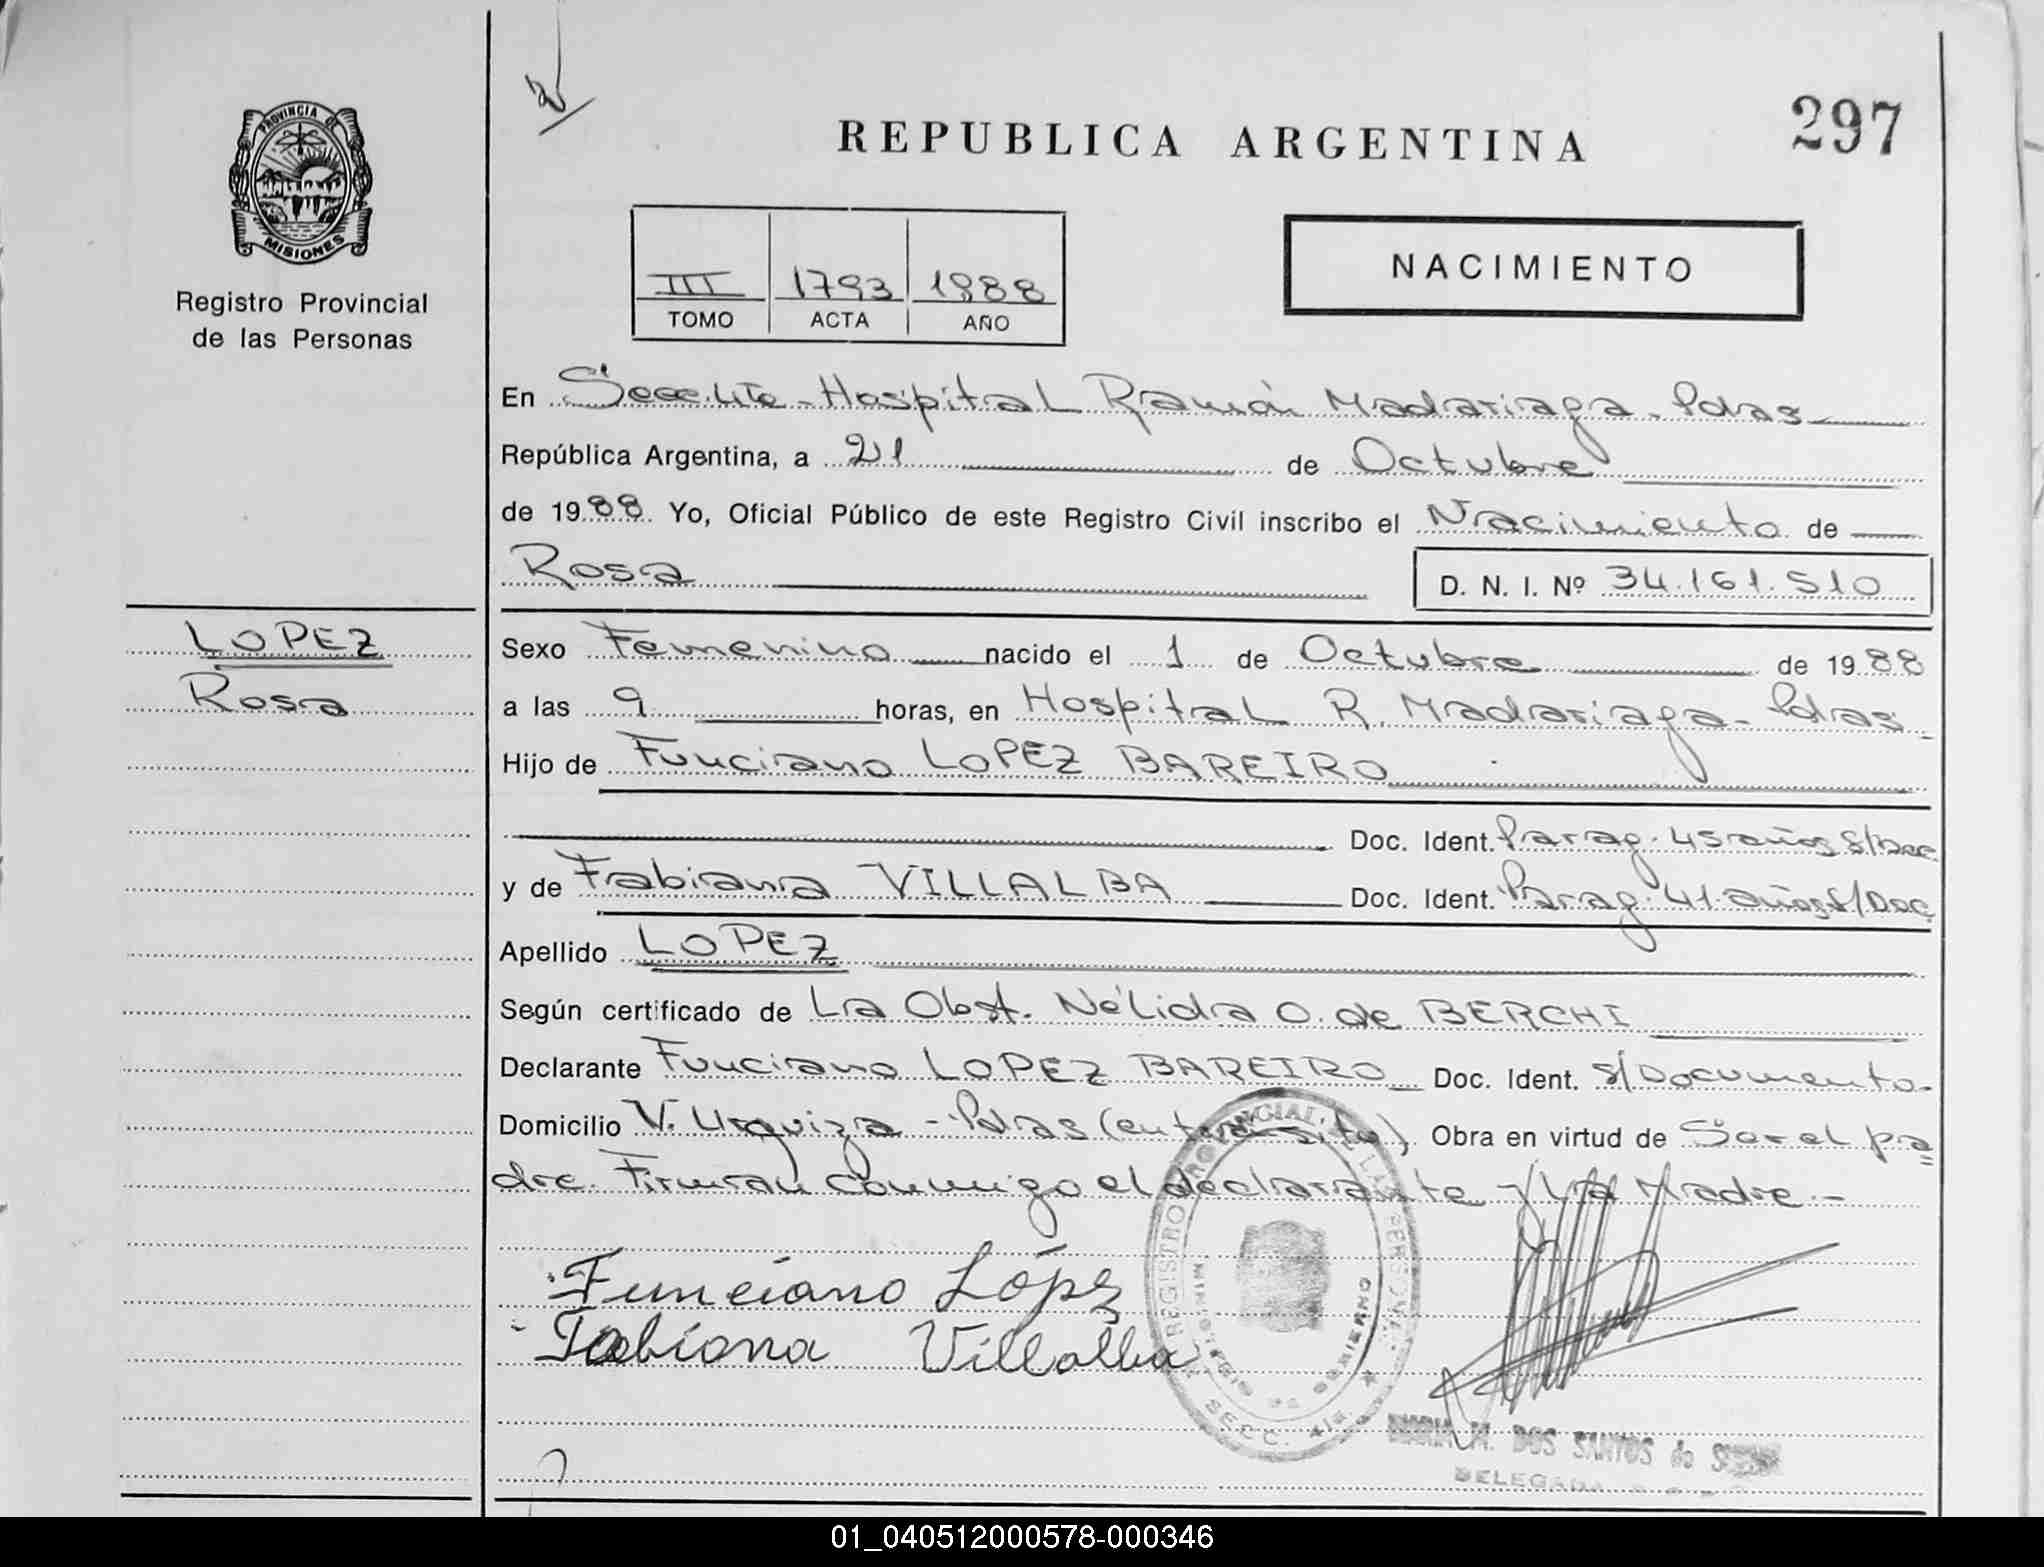 PROVINCIA DE
MISIONES
Registro Provincial
de las Personas
LOPEZ
Rosa
REPUBLICA ARGENTINA
297
III 1793 1988
TOMO ACTA AÑO
NACIMIENTO
En Secc. 4ta - Hospital Ramón Madariaga - Pdas
República Argentina, a 21 de Octubre
de 1988 Yo, Oficial Público de este Registro Civil inscribo el Nacimiento de
Rosa D. N. I. Nº 34.161.510
Sexo Femenino nacido el 1 de Octubre de 1988
a las 9 horas, en Hospital R. Madariaga - Pdas
Hijo de Funciano LOPEZ BAREIRO
Doc. Ident. Parag. 45 años S/Doc
y de Fabiana VILLALBA Doc. Ident. Parag. 41 años S/Doc
Apellido LOPEZ
Según certificado de La Obst. Nélida O. de BERCHI
Declarante Funciano LOPEZ BAREIRO Doc. Ident. S/Documento.
Domicilio V. Urquiza - Pdas (en transito). Obra en virtud de Ser el pa
dre. Firman conmigo el declarante y la Madre.-
Funciano López
Fabiana Villalba
REGISTRO PROVINCIAL DE LAS PERSONAS
MINISTERIO DE GOBIERNO
SECC. 4ta
M. DOS SANTOS de
DELEGADA
01_040512000578-000346